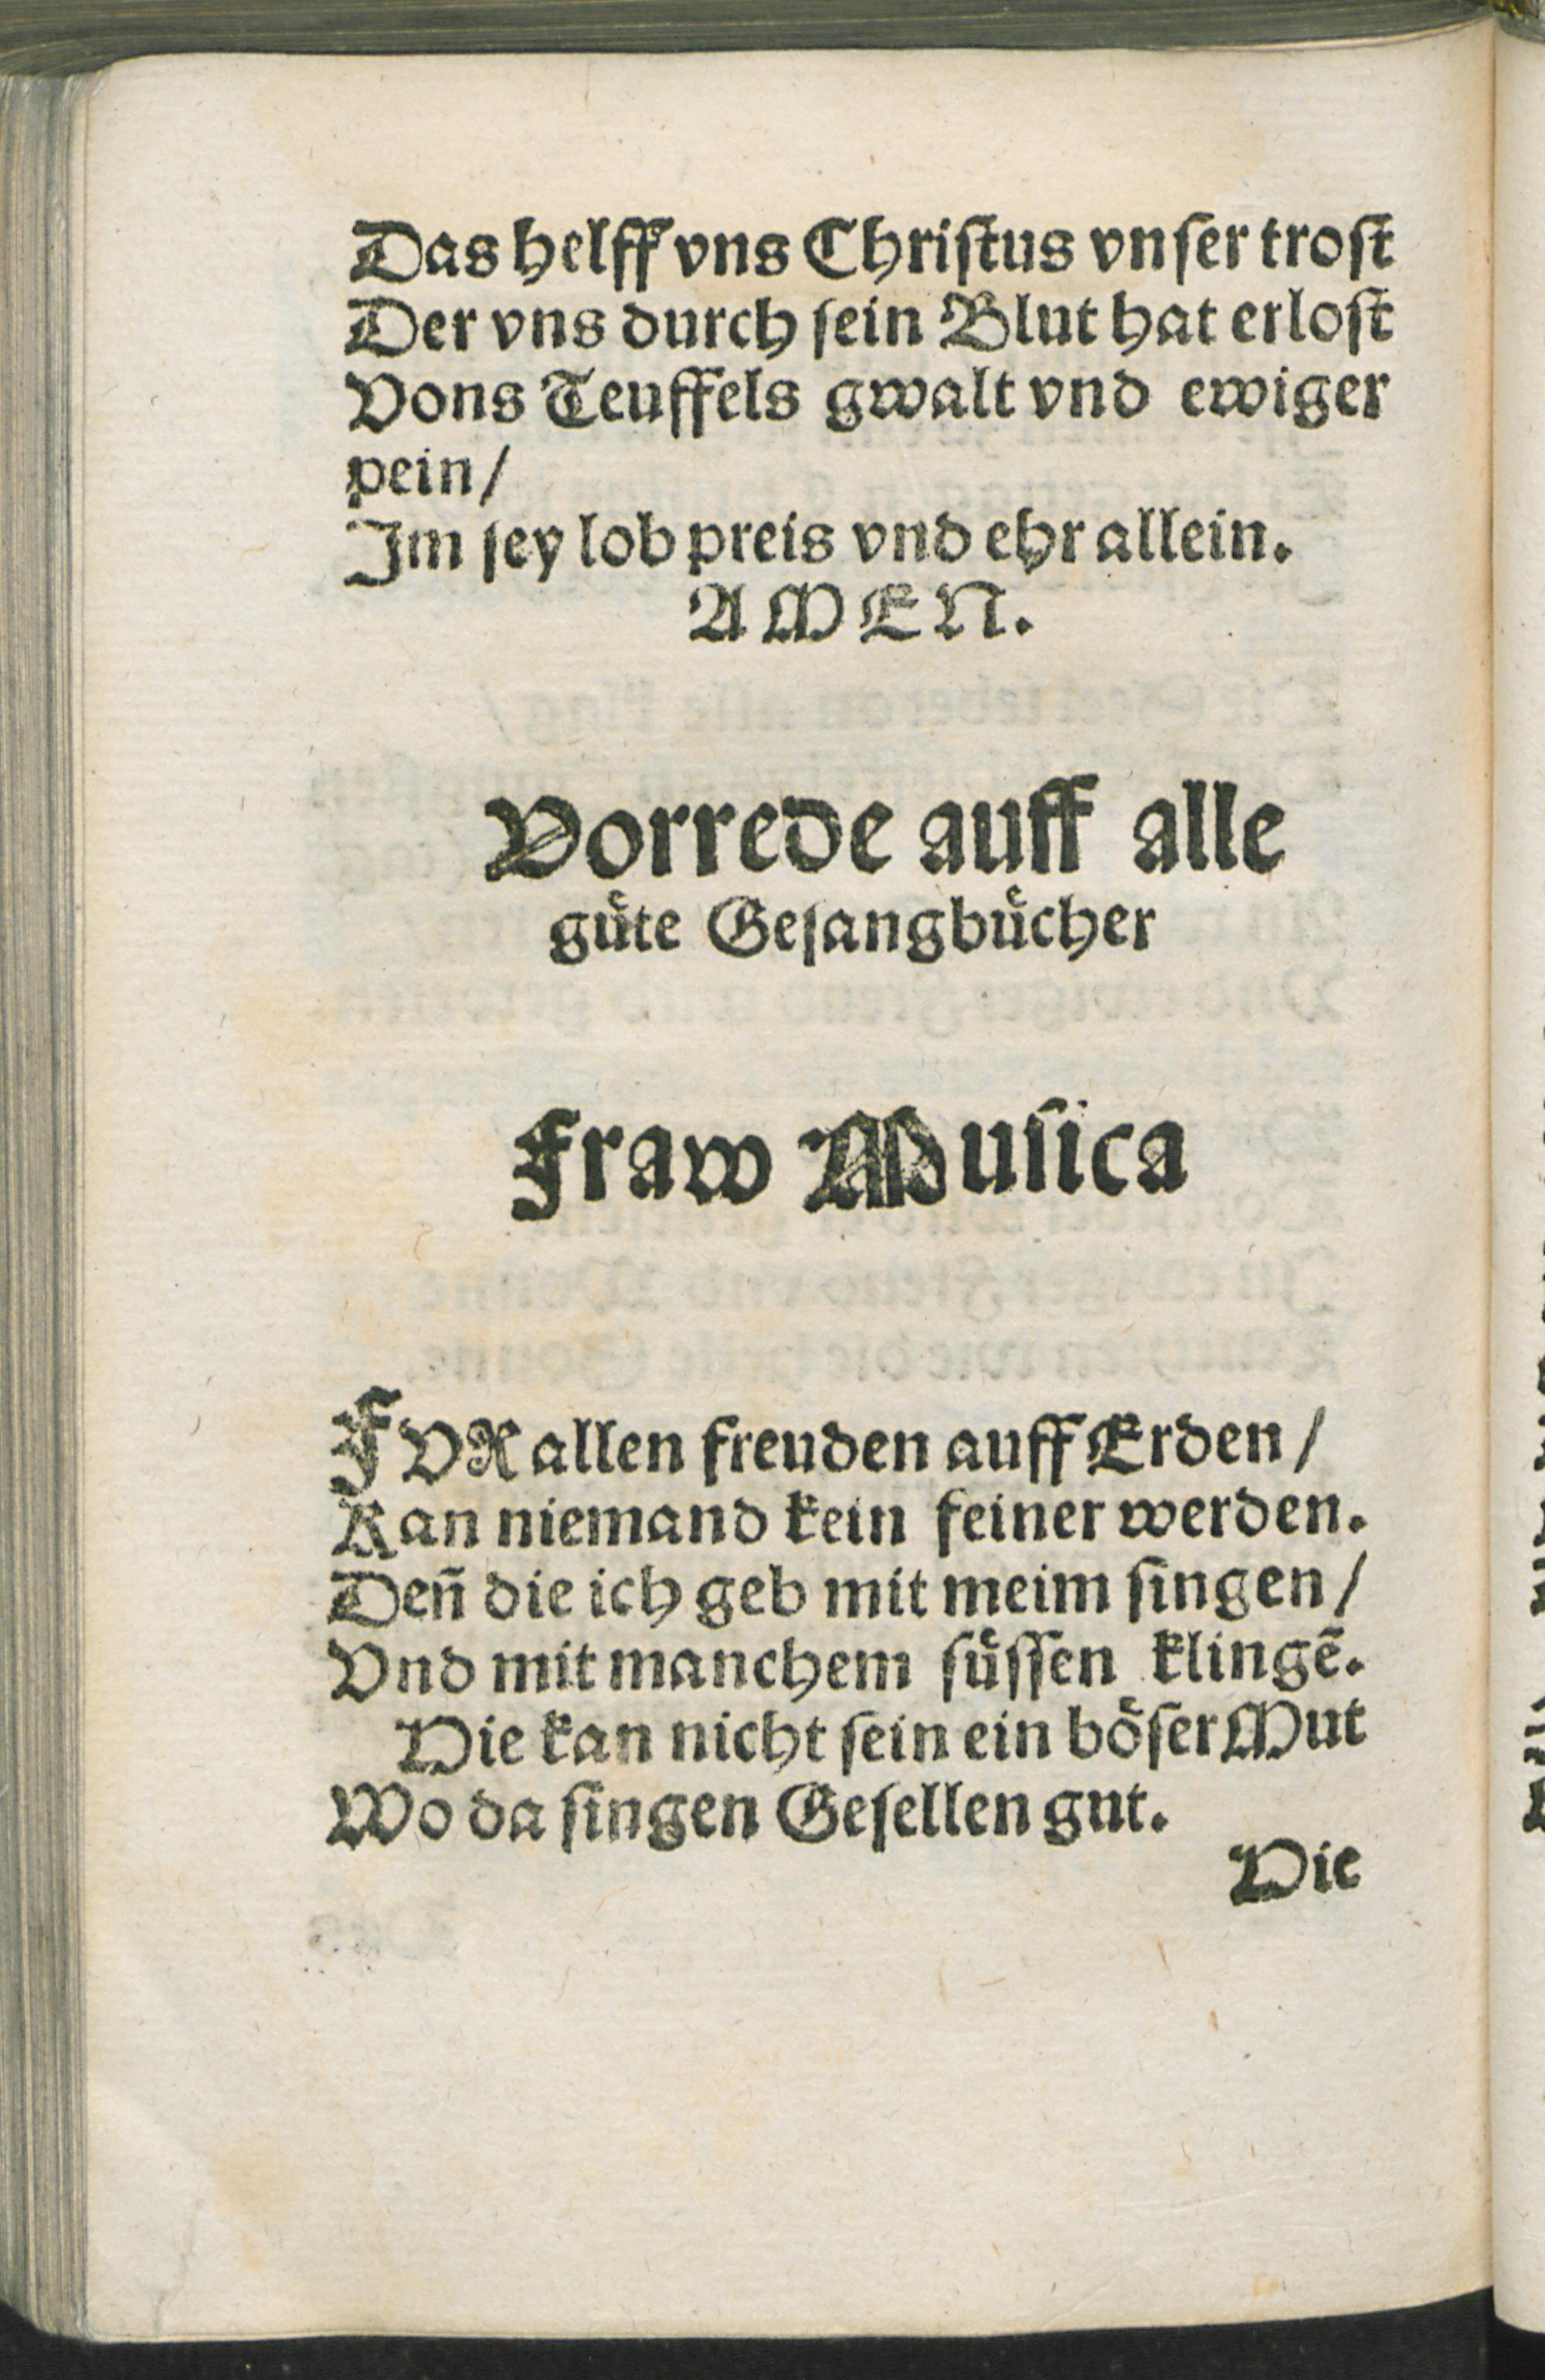 Das helff vns Chriſtus vnſer troſt
Der vns durch ſein Blut hat erloſt
Vons Teuffels gwalt vnd ewiger
pein/
Jm ſey lob preis vnd ehr allein.
AMEN.
Vorrede auff alle
guͤte Geſangbuͤcher
Fraw Muſica
FVR allen freuden auff Erden/
Kan niemand kein feiner werden.
Deñ die ich geb mit meim ſingen/
Vnd mit manchem ſuͤſſen klingē.
Hie kan nicht ſein ein boͤſer Mut
Wo da ſingen Geſellen gut.
Hie